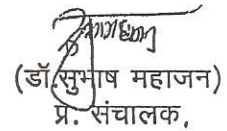 (डॉ.सुभाष महाजन)
प्र. संचालक.